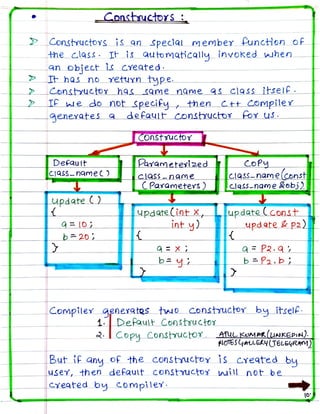 Constructors :
Constructors is an special member function of
the class. It is automatically invoked when
an object is created.
It has no return type.
Constructor has same name as class itself.
If we do not specify, then C++ compiler
generates a default constructor for us.
Constructor
Default
class_name()
Parameterized
class_name
(Parameters)
Copy
class_name(const
class_name &obj)
update ()
{
a = 10;
b = 20;
}
update(int x,
int y)
{
a = x;
b = y;
}
update(const
update & p2)
{
a = P2.a;
b = P2.b;
}
Compiler generates two constructor by itself.
1. Default Constructor
2. Copy Constructor
ATUL KUMAR (LINKEDIN).
NOTES GALLERY (TELEGRAM)
But if any of the constructor is created by
user, then default constructor will not be
created by compiler.
10